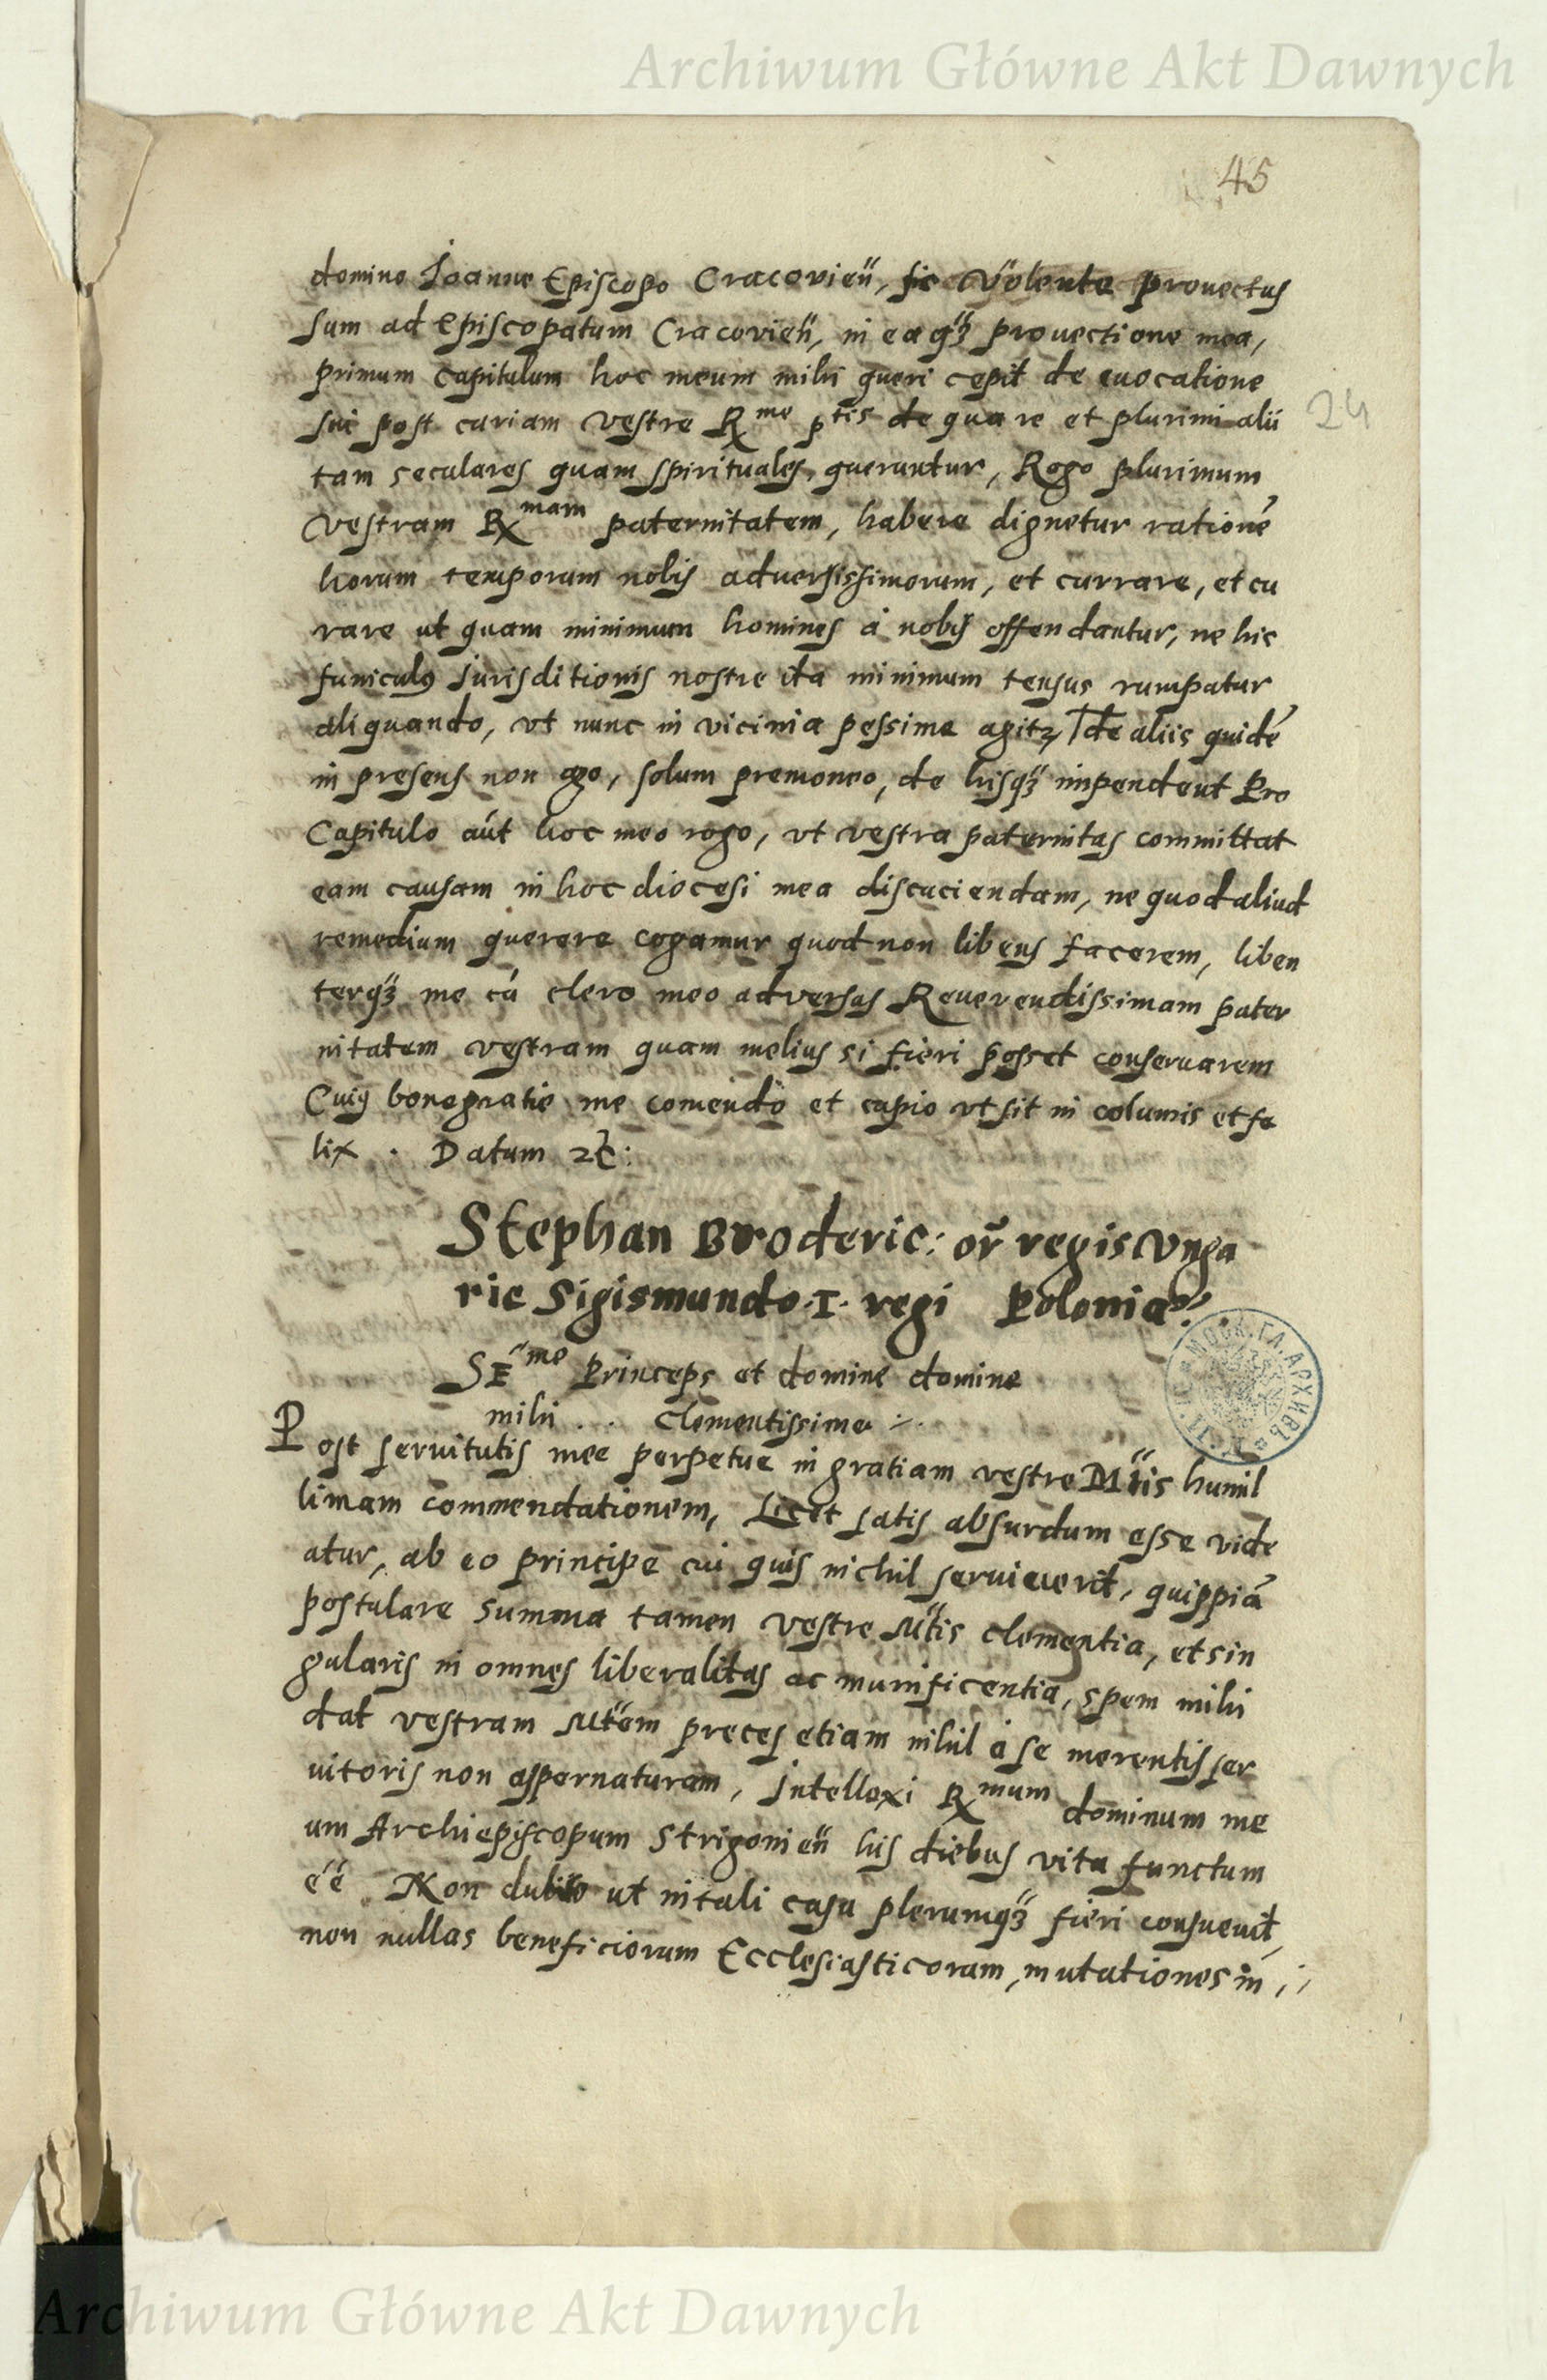 Archiwum Główne Akt Dawnych
45
domino Joanne Episcopo Cracovień, sic volente provectus
sum ad Episcopatum Cracovień, in eaq3 provectione mea,
primum capitulum hoc meum mihi queri cepit de evocatione
sui post curiam vestre Rme ptis de qua re et plurimi alii
24
tam seculares quam spirituales, queruntur, Rogo plurimum
vestram Rmam paternitatem, habere dignetur rationē
horum temporum nobis adversissimorum, et currare, et cu
rare ut quam minimum homines à nobis offendantur, ne hic
funiculus Jurisditionis nostre ita minimum tensus rumpatur
aliquando, ut nunc in vicinia pessime agit2, de aliis quidē
in presens non ago, solum premoneo, de hisq3 impendent Pro
Capitulo aūt hoc meo rogo, ut vestra paternitas committat
eam causam in hoc diocesi mea discuciendam, ne quod aliud
remedium querere cogamur quod non libens facerem, liben
terq3 me cū clero meo adversus Reverendissimam pater
nitatem vestram quam melius si fieri posset conservarem
Cuiq bonegratie me comendo et cupio ut sit in columis et fe
lix . Datum 2c:
Stephan Broderic: or̃ regis Unga
rie Sigismundo .I. regi Poloniae
SEme Princeps et domine domine
mihi ... Clementissime
Post servitutis mee perpetue in gratiam vestre Mtis humil
limam commendationem, Licet satis absurdum esse vide
atur, ab eo principe cui quis nichil servieverit, quippiā
postulare summa tamen vestre Mtis clementia, et sin
gularis in omnes liberalitas ac munificentia, spem mihi
dat vestram Mtem preces etiam nihil à se merentis ser
vitoris non aspernaturam, Intellexi Rmum dominum me
um Archiepiscopum Strigonień his diebus vita functum
éé Non dubito ut in tali casu plerumq3 fieri consuevit,
non nullas beneficiorum Ecclesiasticorum, mutationes in
Archiwum Główne Akt Dawnych